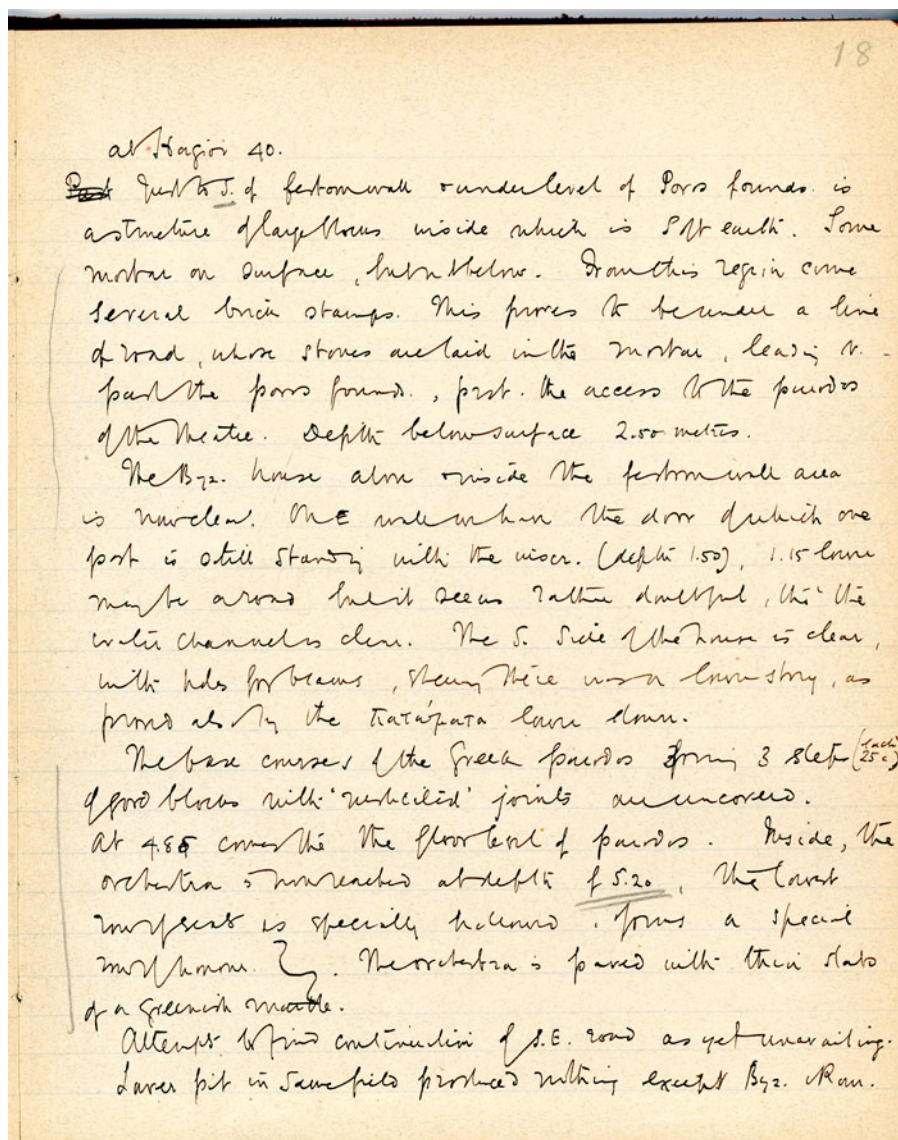 18
at Hagior 40.
Just to S. of festoon wall & under level of Poros founds. is
a structure of large blocks inside which is soft earth. Some
mortar on surface, but not below. From this region come
several brick stamps. This proves to be under a line
of road, whose stones are laid in the mortar, leading
past the poros founds., past the access to the parodos
of the theatre. Depth below surface 2.50 metres.
The Byz. house above & inside the festoon wall area
is now clear. On E wall we have the door of which one
post is still standing with the (depth 1.50), 1.15 lower
may be a road but it seems rather doubtful, tho' the
water channel is clear. The S. side of the house is clear,
with holes for beams, showing there was a lower story, as
proved also by the πατώματα lower down.
The base courses of the Greek parodos forming 3 steps (each 25 c)
of good blocks with joints are uncovered.
At 4.85 comes the the floor level of parodos. Inside, the
orchestra is now reached at depth of 5.20, the lowest
row of seats is specially hollowed & forms a special
row of honour. The orchestra is paved with thin slabs
of a greenish marble.
Attempt to find continuation of S.E. road as yet unavailing.
pit in same field produced nothing except Byz. & Rom.